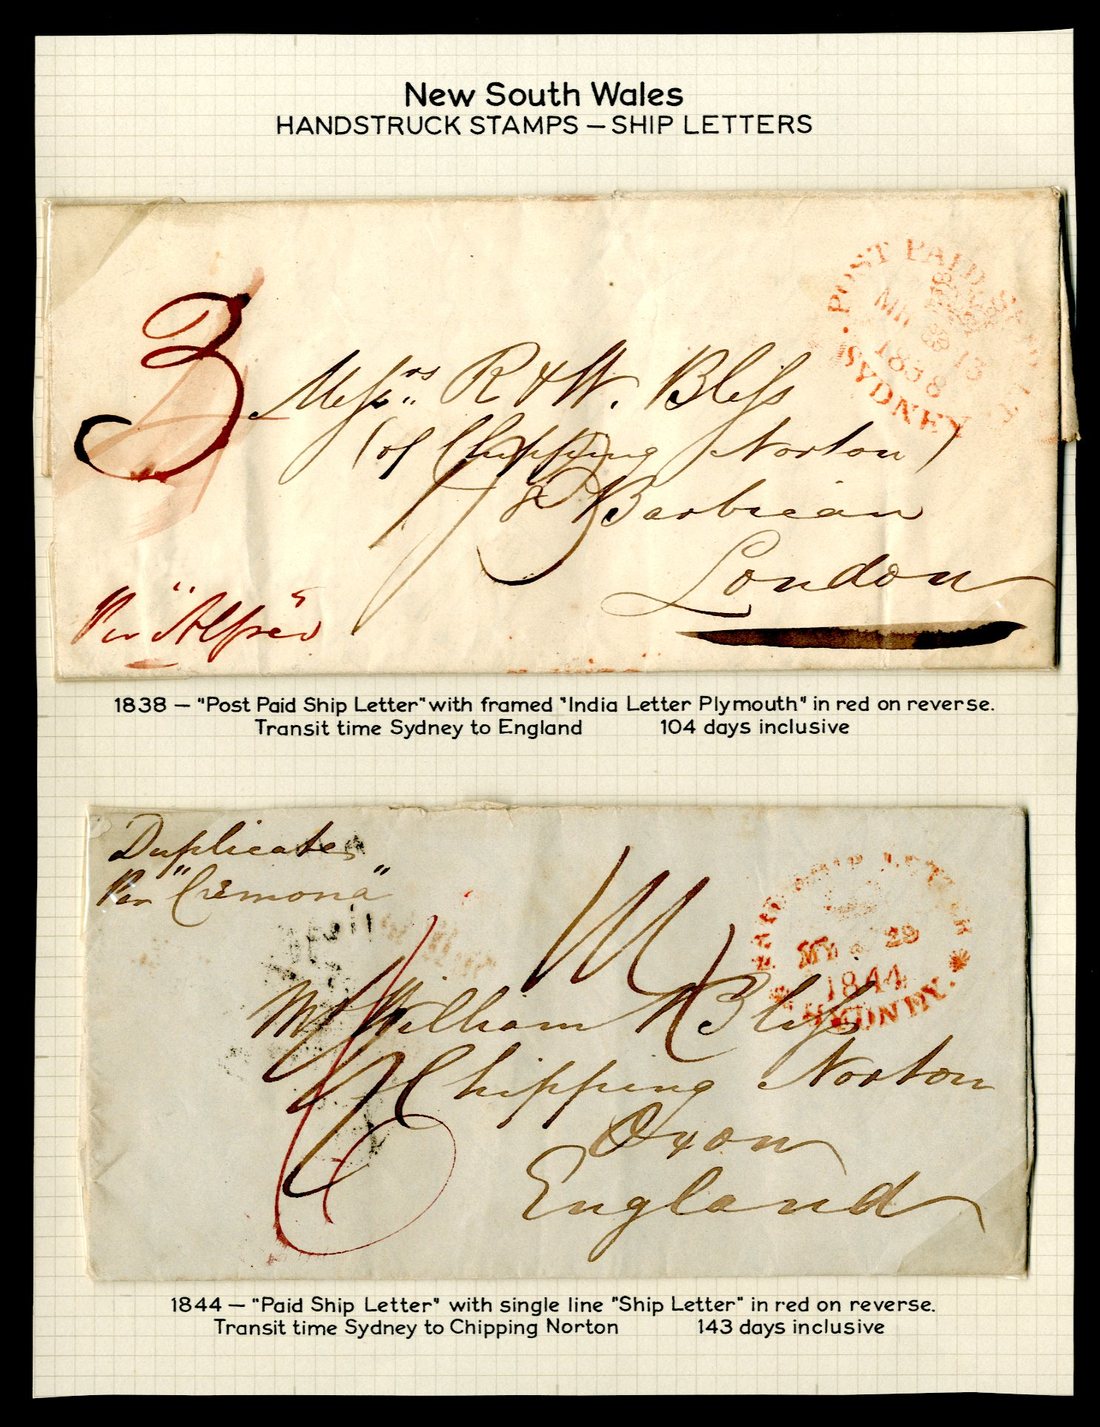 New South Wales
HANDSTRUCK STAMPS – SHIP LETTERS
3
POST PAID SHIP
MR 13
1838
SYDNEY
Messrs R & W. Bliss
(of Chipping Norton)
Barbican
London
Per "Alfred"
1838 – "Post Paid Ship Letter" with framed "India Letter Plymouth" in red on reverse.
Transit time Sydney to England 104 days inclusive
Duplicate
Per "Cremona"
PAID SHIP LETTER
MY 29
1844
SYDNEY.
Mr William Bliss
Chipping Norton
Oxon
England
1844 – "Paid Ship Letter" with single line "Ship Letter" in red on reverse.
Transit time Sydney to Chipping Norton 143 days inclusive